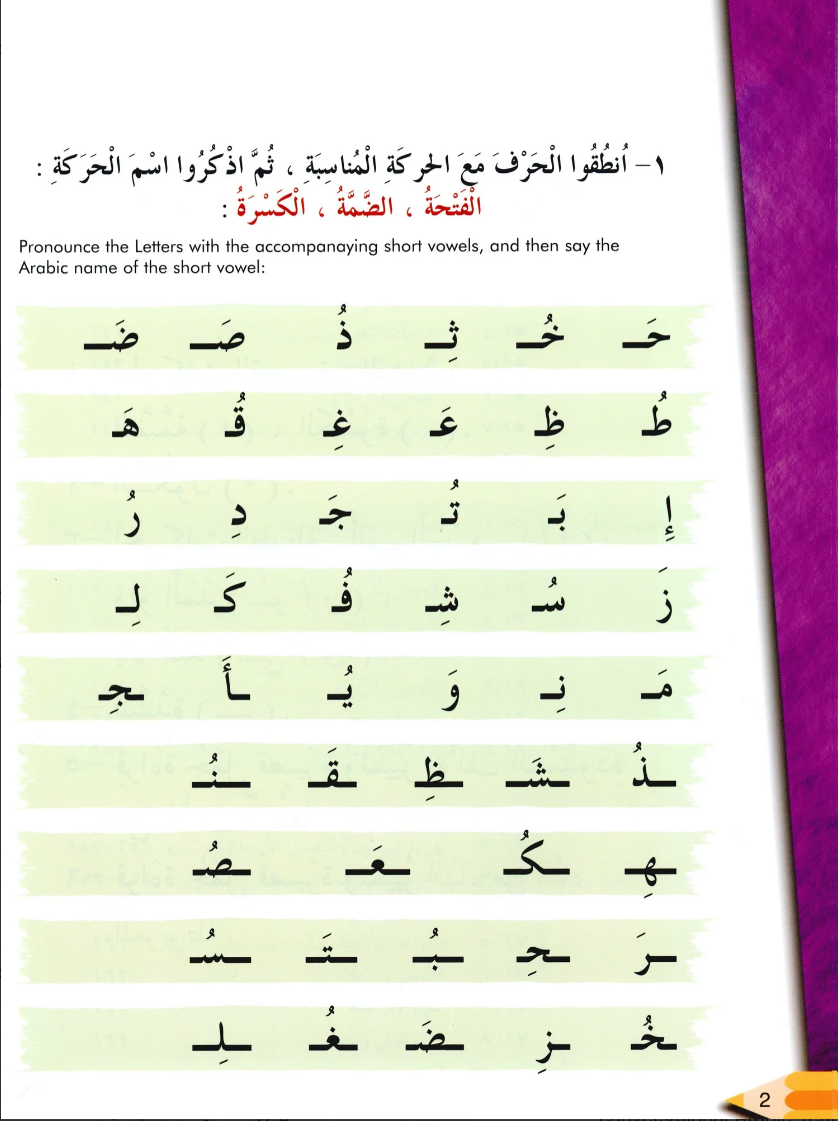 ١- اُنطُقُوا الْحَرْفَ مَعَ الحركَةِ الْمُناسِبَةِ ، ثُمَّ اذْكُرُوا اسْمَ الْحَرَكَةِ :
الْفَتْحَةُ ، الضَّمَّةُ ، الْكَسْرَةُ :
Pronounce the Letters with the accompanaying short vowels, and then say the
Arabic name of the short vowel:
حَـ خُـ ثِـ ذُ صَـ ضَـ
طُ ظِ عَـ غِـ قُـ هَـ
إِ بَـ تُـ جَـ دِ رُ
زَ سُـ شِـ فُـ كَـ لِـ
مَـ نِـ وَ يُـ ـأَ ـجِـ
ـذُ ـشَـ ـظِـ ـقَـ ـنُـ
ـهِـ ـكُـ ـعَـ ـصُـ
ـرَ ـحِـ ـبُـ ـتَـ ـسُـ
ـخُـ ـزِ ـضَـ ـغُـ ـلِـ
2